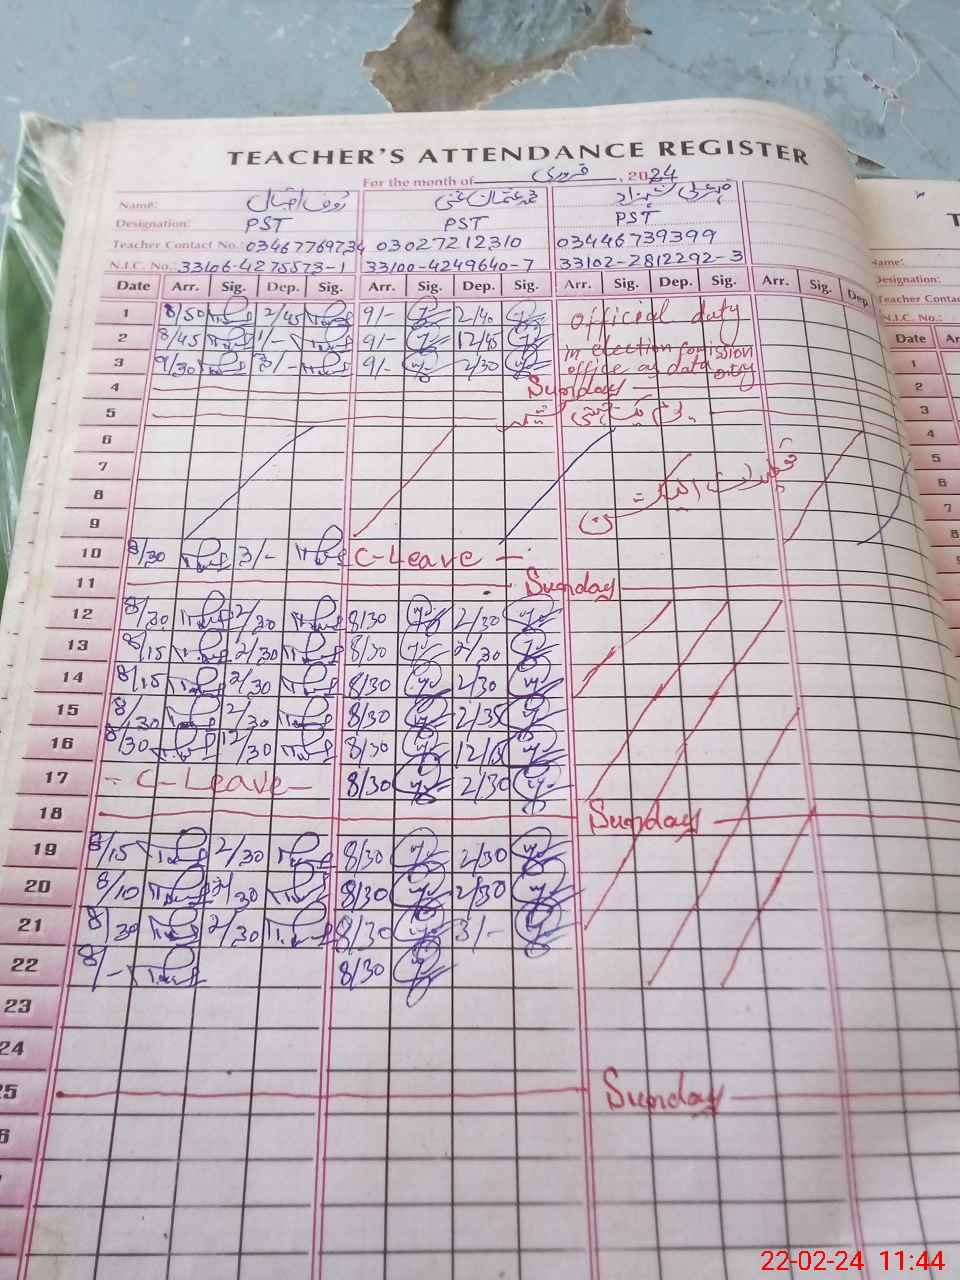 TEACHER'S ATTENDANCE REGISTER
For the month of فروری , 2024
Name: رؤف اقبال محمد عثمان غنی
Designation: PST PST PST
Teacher Contact No.: 03467769734 03027212310 03446739399
N.I.C. No.: 33106-4275573-1 33100-4249640-7 33102-2812292-3
Date Arr. Sig. Dep. Sig. Arr. Sig. Dep. Sig. Arr. Sig. Dep. Sig. Arr. Sig. Dep.
1 8/50 2/45 9/- 2/40 official duty
2 8/45 1/- 9/- 12/45 in election commission
3 9/30 3/- 9/- 2/30 office as data entry
4 Sunday
5 یوم یکجہتی کشمیر
6
7 تعطیلات الیکشن
8
9
10 8/30 3/- C-Leave
11 Sunday
12 8/30 2/30 8/30 2/30
13 8/15 2/30 8/30 2/30
14 8/15 2/30 8/30 2/30
15 8/30 2/30 8/30 2/35
16 8/30 12/30 8/30 12/15
17 - C-Leave- 8/30 2/30
18 Sunday
19 8/15 2/30 8/30 2/30
20 8/10 2/30 8/30 2/30
21 8/30 2/30 8/30 3/-
22 8/- 8/30
23
24
25 Sunday
6
7
Name:
Designation:
Teacher Contact
N.I.C. No.:
Date Ar
1
2
3
4
5
6
7
8
9
10
22-02-24 11:44